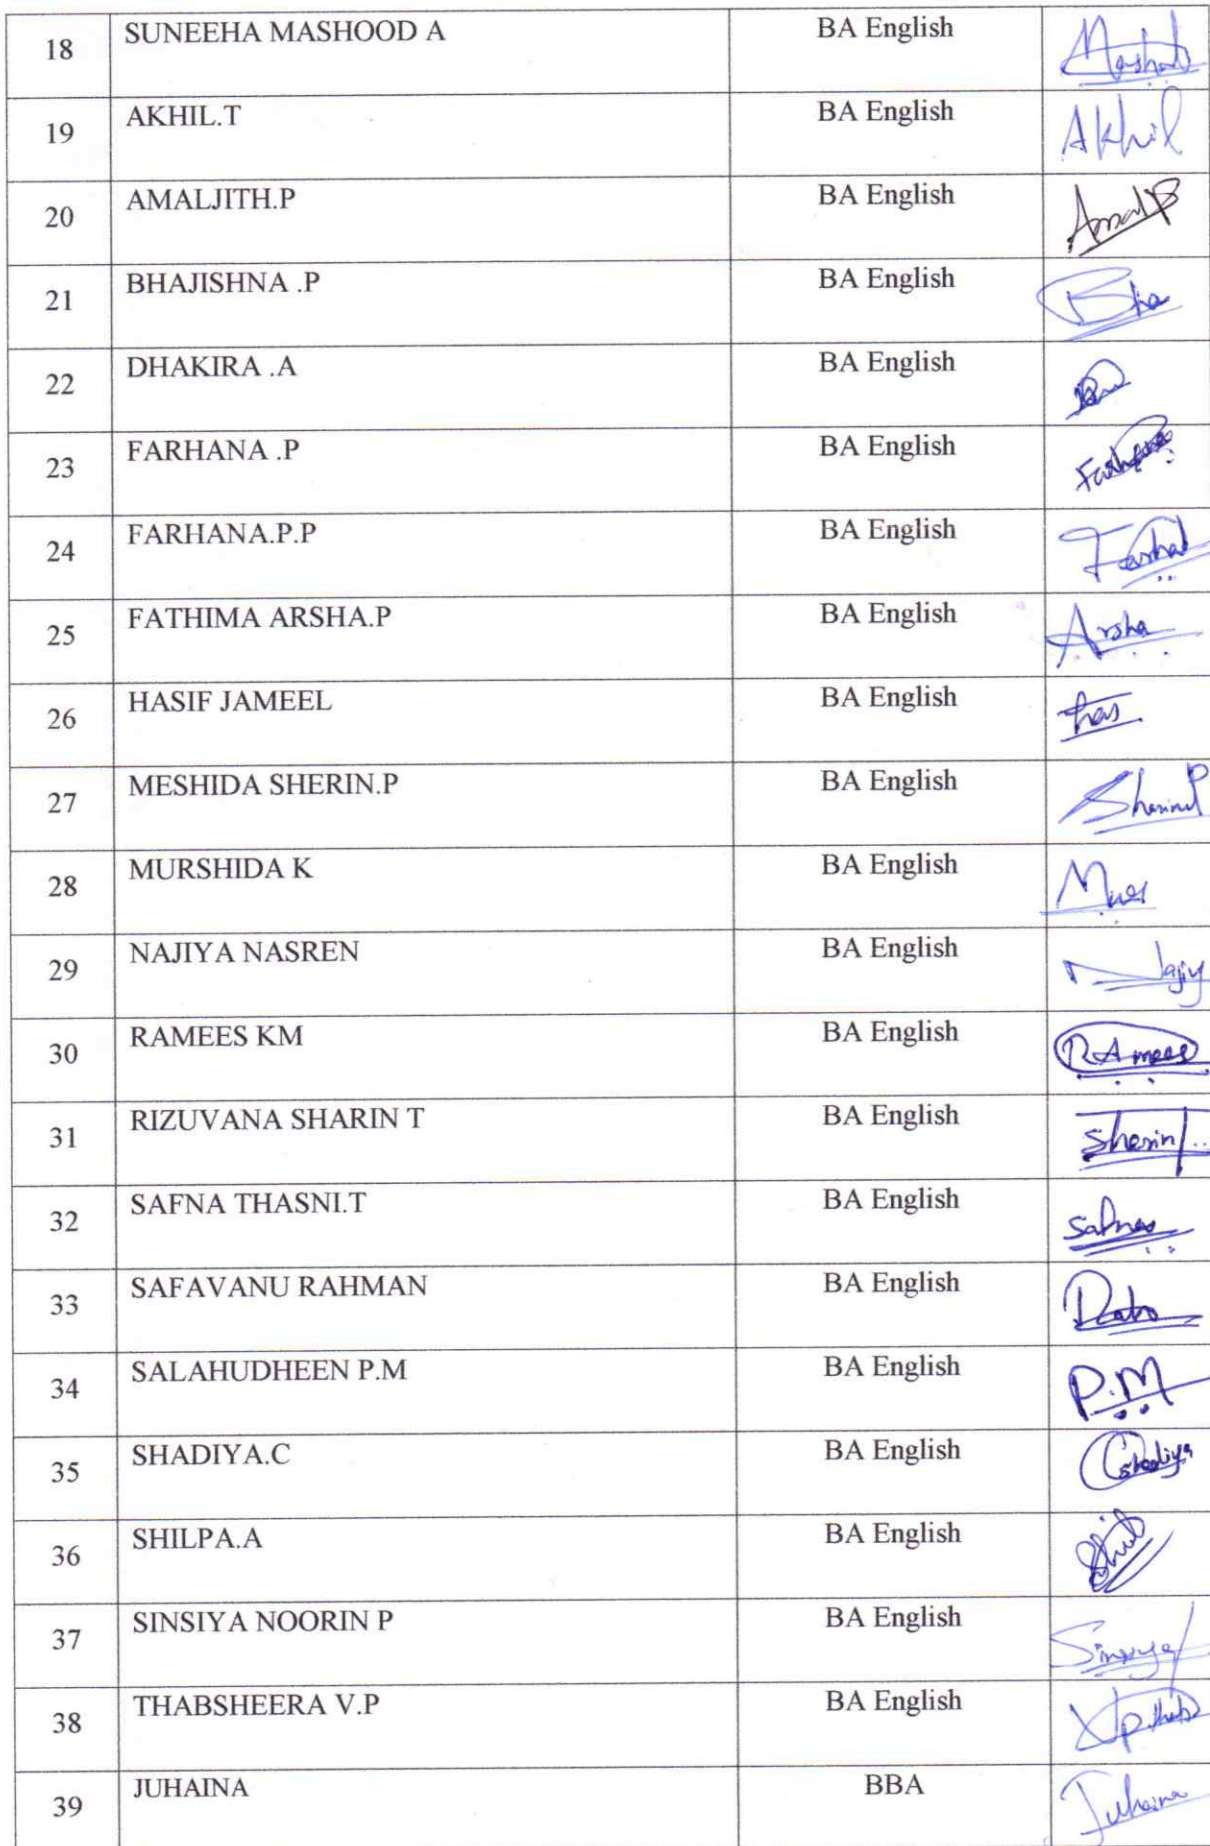 18 SUNEEHA MASHOOD A BA English Mashood
19 AKHIL.T BA English Akhil
20 AMALJITH.P BA English AmalP
21 BHAJISHNA .P BA English Bha
22 DHAKIRA .A BA English
23 FARHANA .P BA English
24 FARHANA.P.P BA English
25 FATHIMA ARSHA.P BA English Arsha
26 HASIF JAMEEL BA English has
27 MESHIDA SHERIN.P BA English
28 MURSHIDA K BA English
29 NAJIYA NASREN BA English Najiy
30 RAMEES KM BA English RAmees
31 RIZUVANA SHARIN T BA English SherinT
32 SAFNA THASNI.T BA English Safna
33 SAFAVANU RAHMAN BA English
34 SALAHUDHEEN P.M BA English P.M
35 SHADIYA.C BA English Cshadiya
36 SHILPA.A BA English
37 SINSIYA NOORIN P BA English
38 THABSHEERA V.P BA English
39 JUHAINA BBA Juhaina